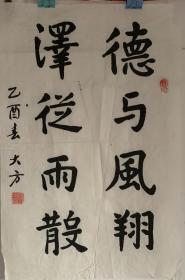 德与風翔
澤從雨散
乙酉春 大方